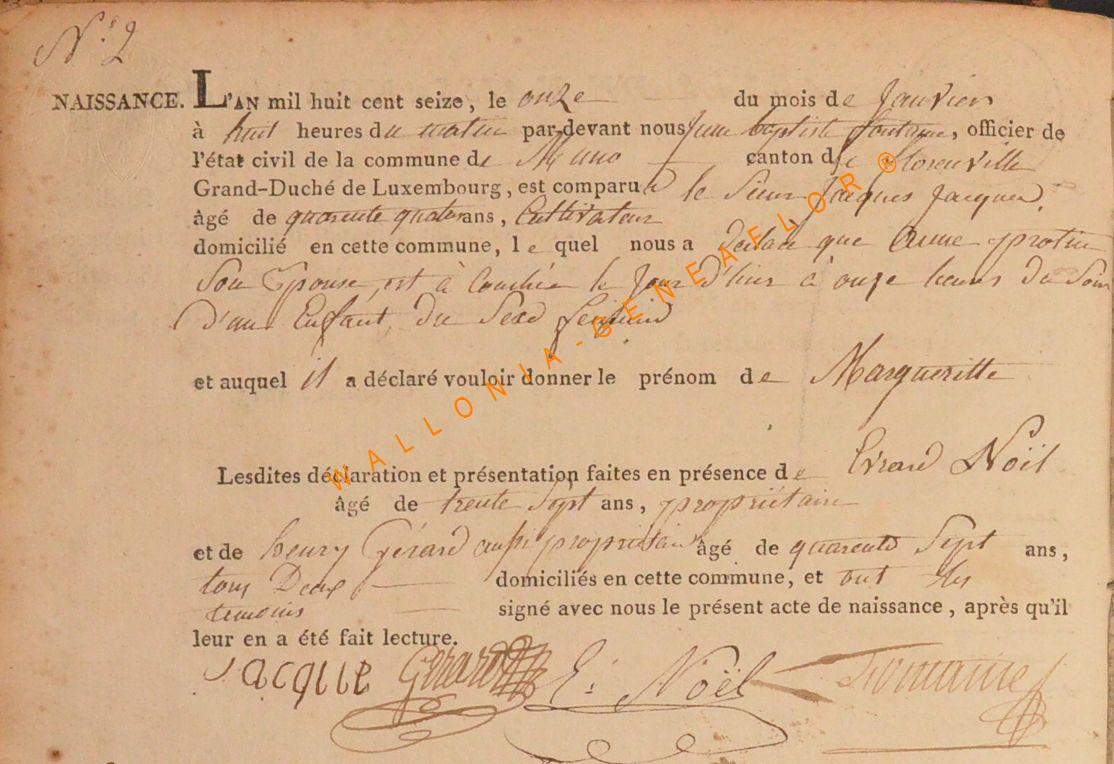 N.° 2
NAISSANCE. L'AN mil huit cent seize, le onze du mois de Janvier
à huit heures du matin par-devant nous Jean baptiste fontaine, officier de
l'état civil de la commune de Muno canton de florenville
Grand-Duché de Luxembourg, est comparu le Sieur Jacques Jacques
âgé de quarente quatre ans, Cultivateur
domicilié en cette commune, le quel nous a déclaré que Anne protin
Son Epouse, est à Couchée le Jour d'hier à onze heures du Soir
D'un Enfant du Sexe feminin
et auquel il a déclaré vouloir donner le prénom de Margueritte
Lesdites déclaration et présentation faites en présence de Erard Noël
âgé de trente Sept ans, propriétaire
et de henry Gérard aussi propriétaire âgé de quarente Sept ans,
tous Deux domiciliés en cette commune, et ont les
temoins signé avec nous le présent acte de naissance, après qu'il
leur en a été fait lecture.
Jacque Gerard E: Noël
WALLONIA-GENEAELOR®